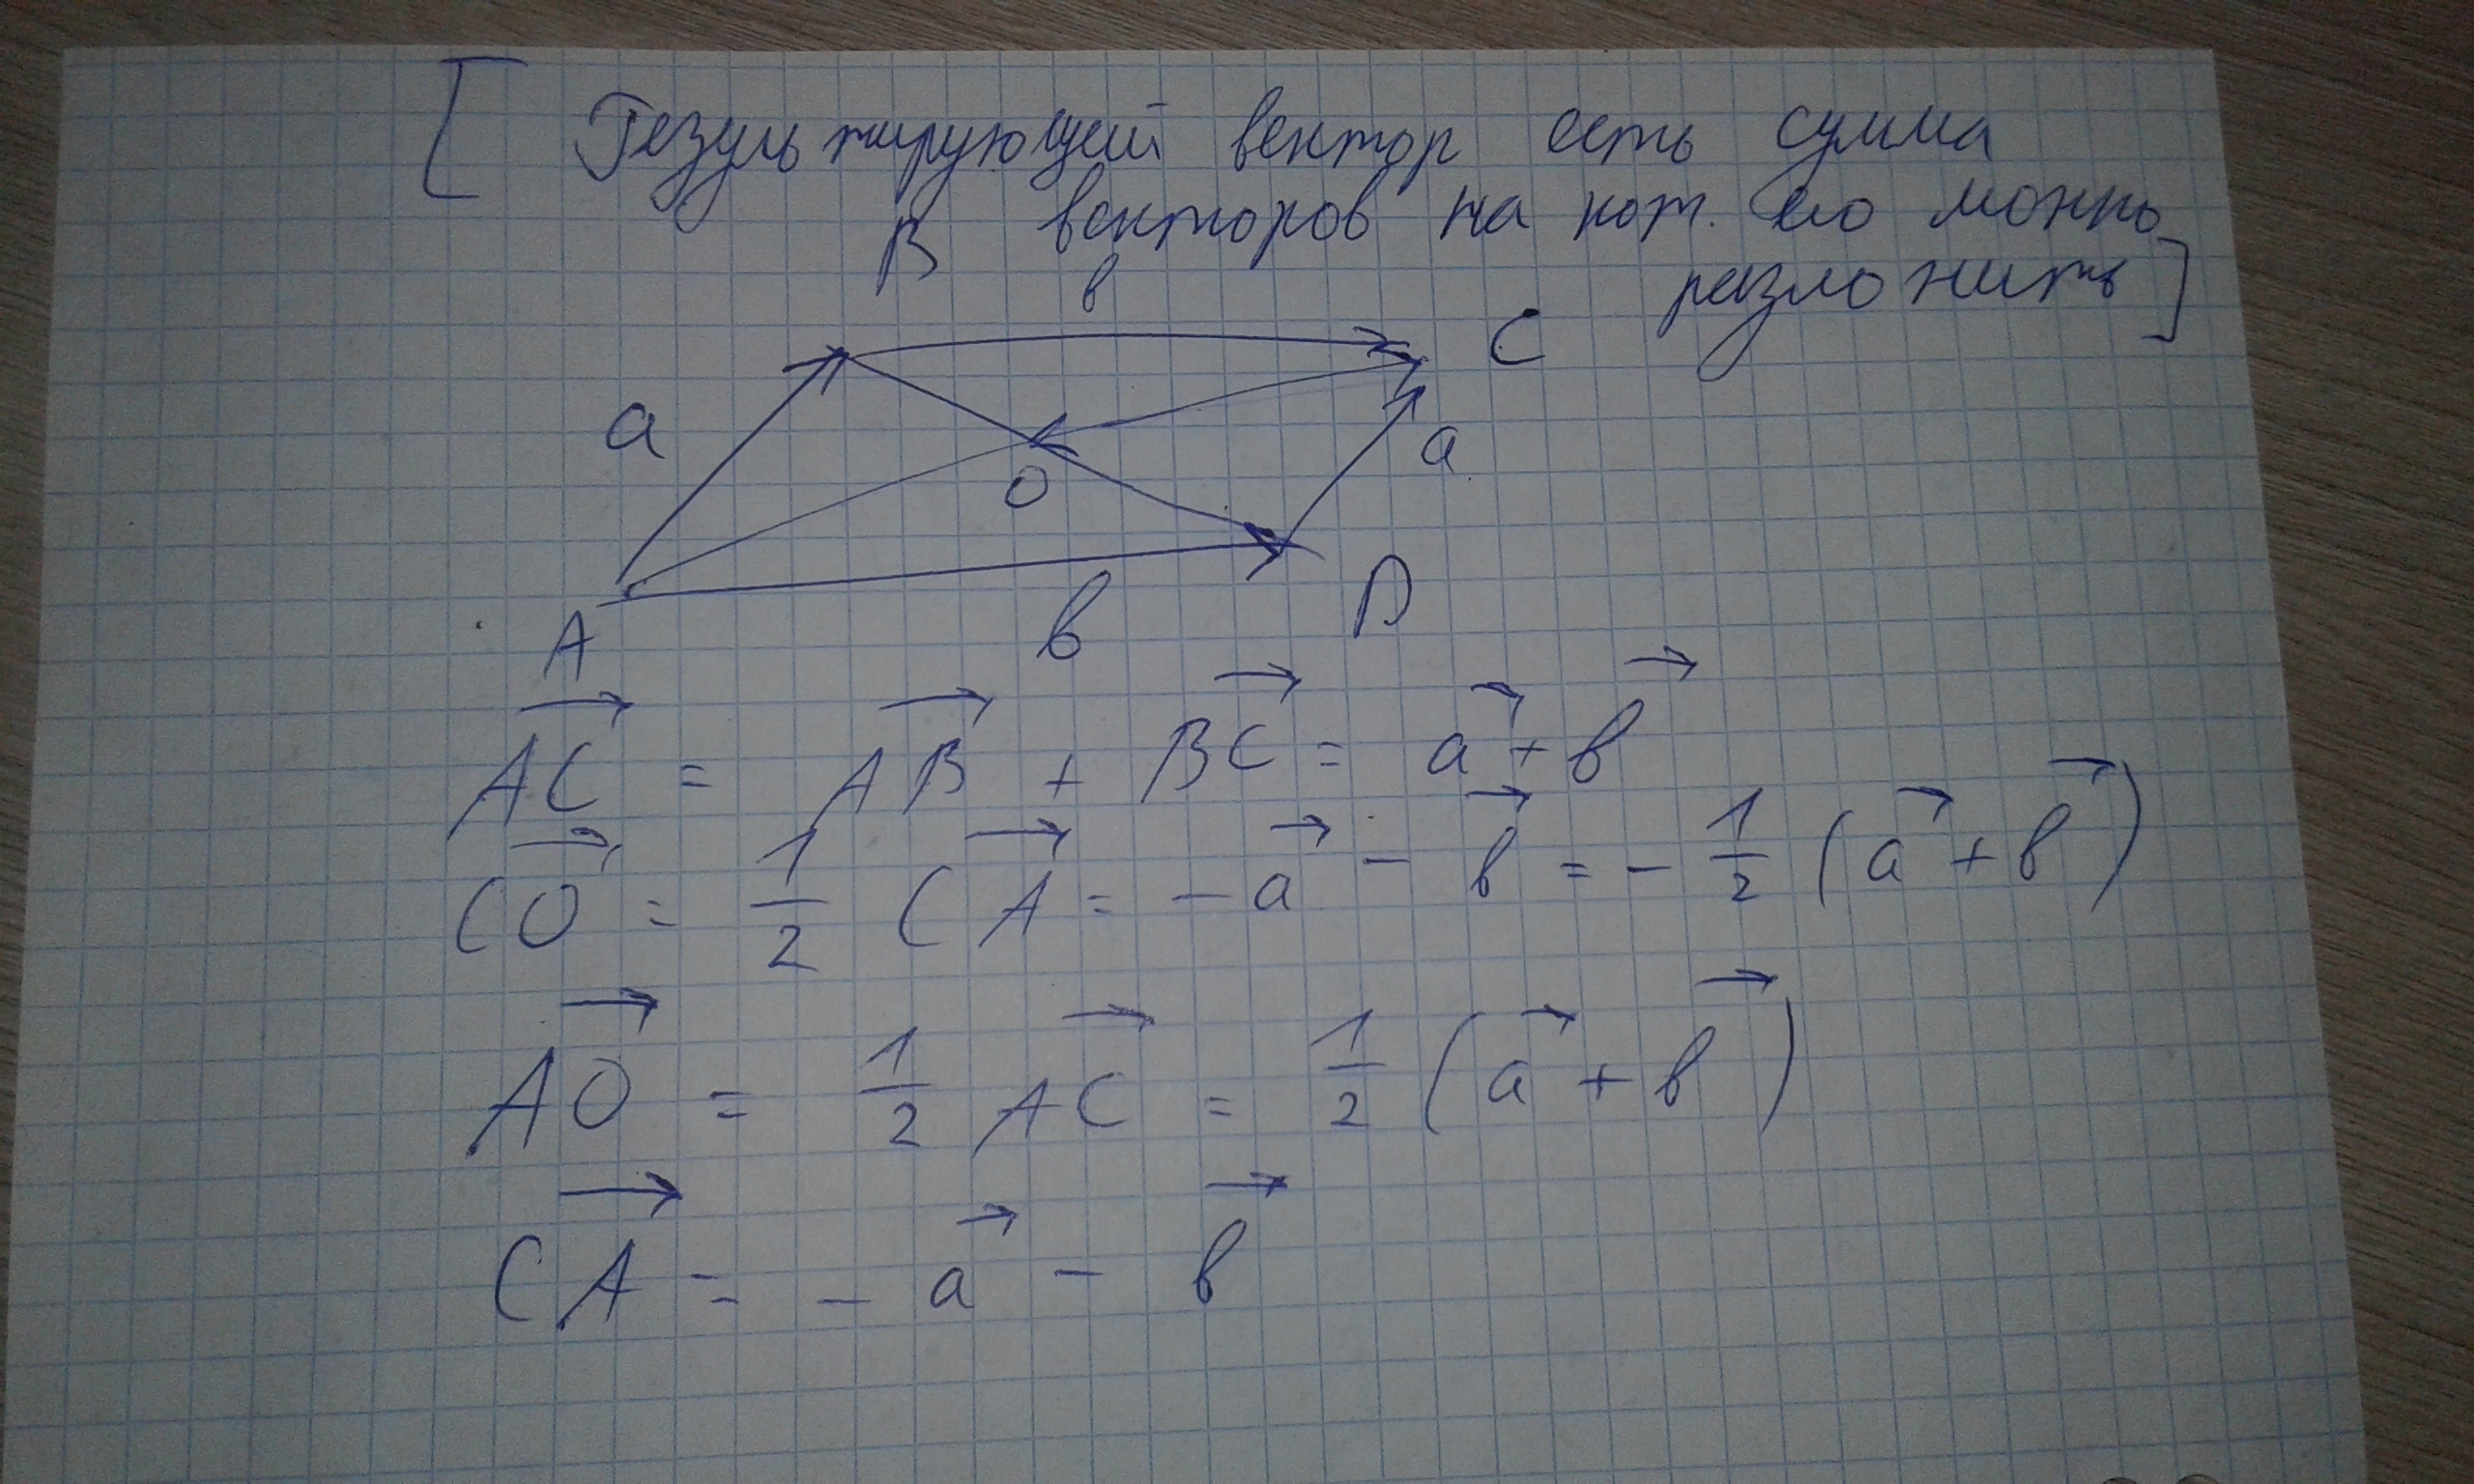 [ Результирующий вектор есть сумма
векторов на кот. его можно
разложить ]
B
в
C
a
a
O
A
в
D
AC = AB + BC = a + в
CO = 1/2 CA = - a - в = - 1/2 (a + в)
AO = 1/2 AC = 1/2 (a + в)
CA = - a - в